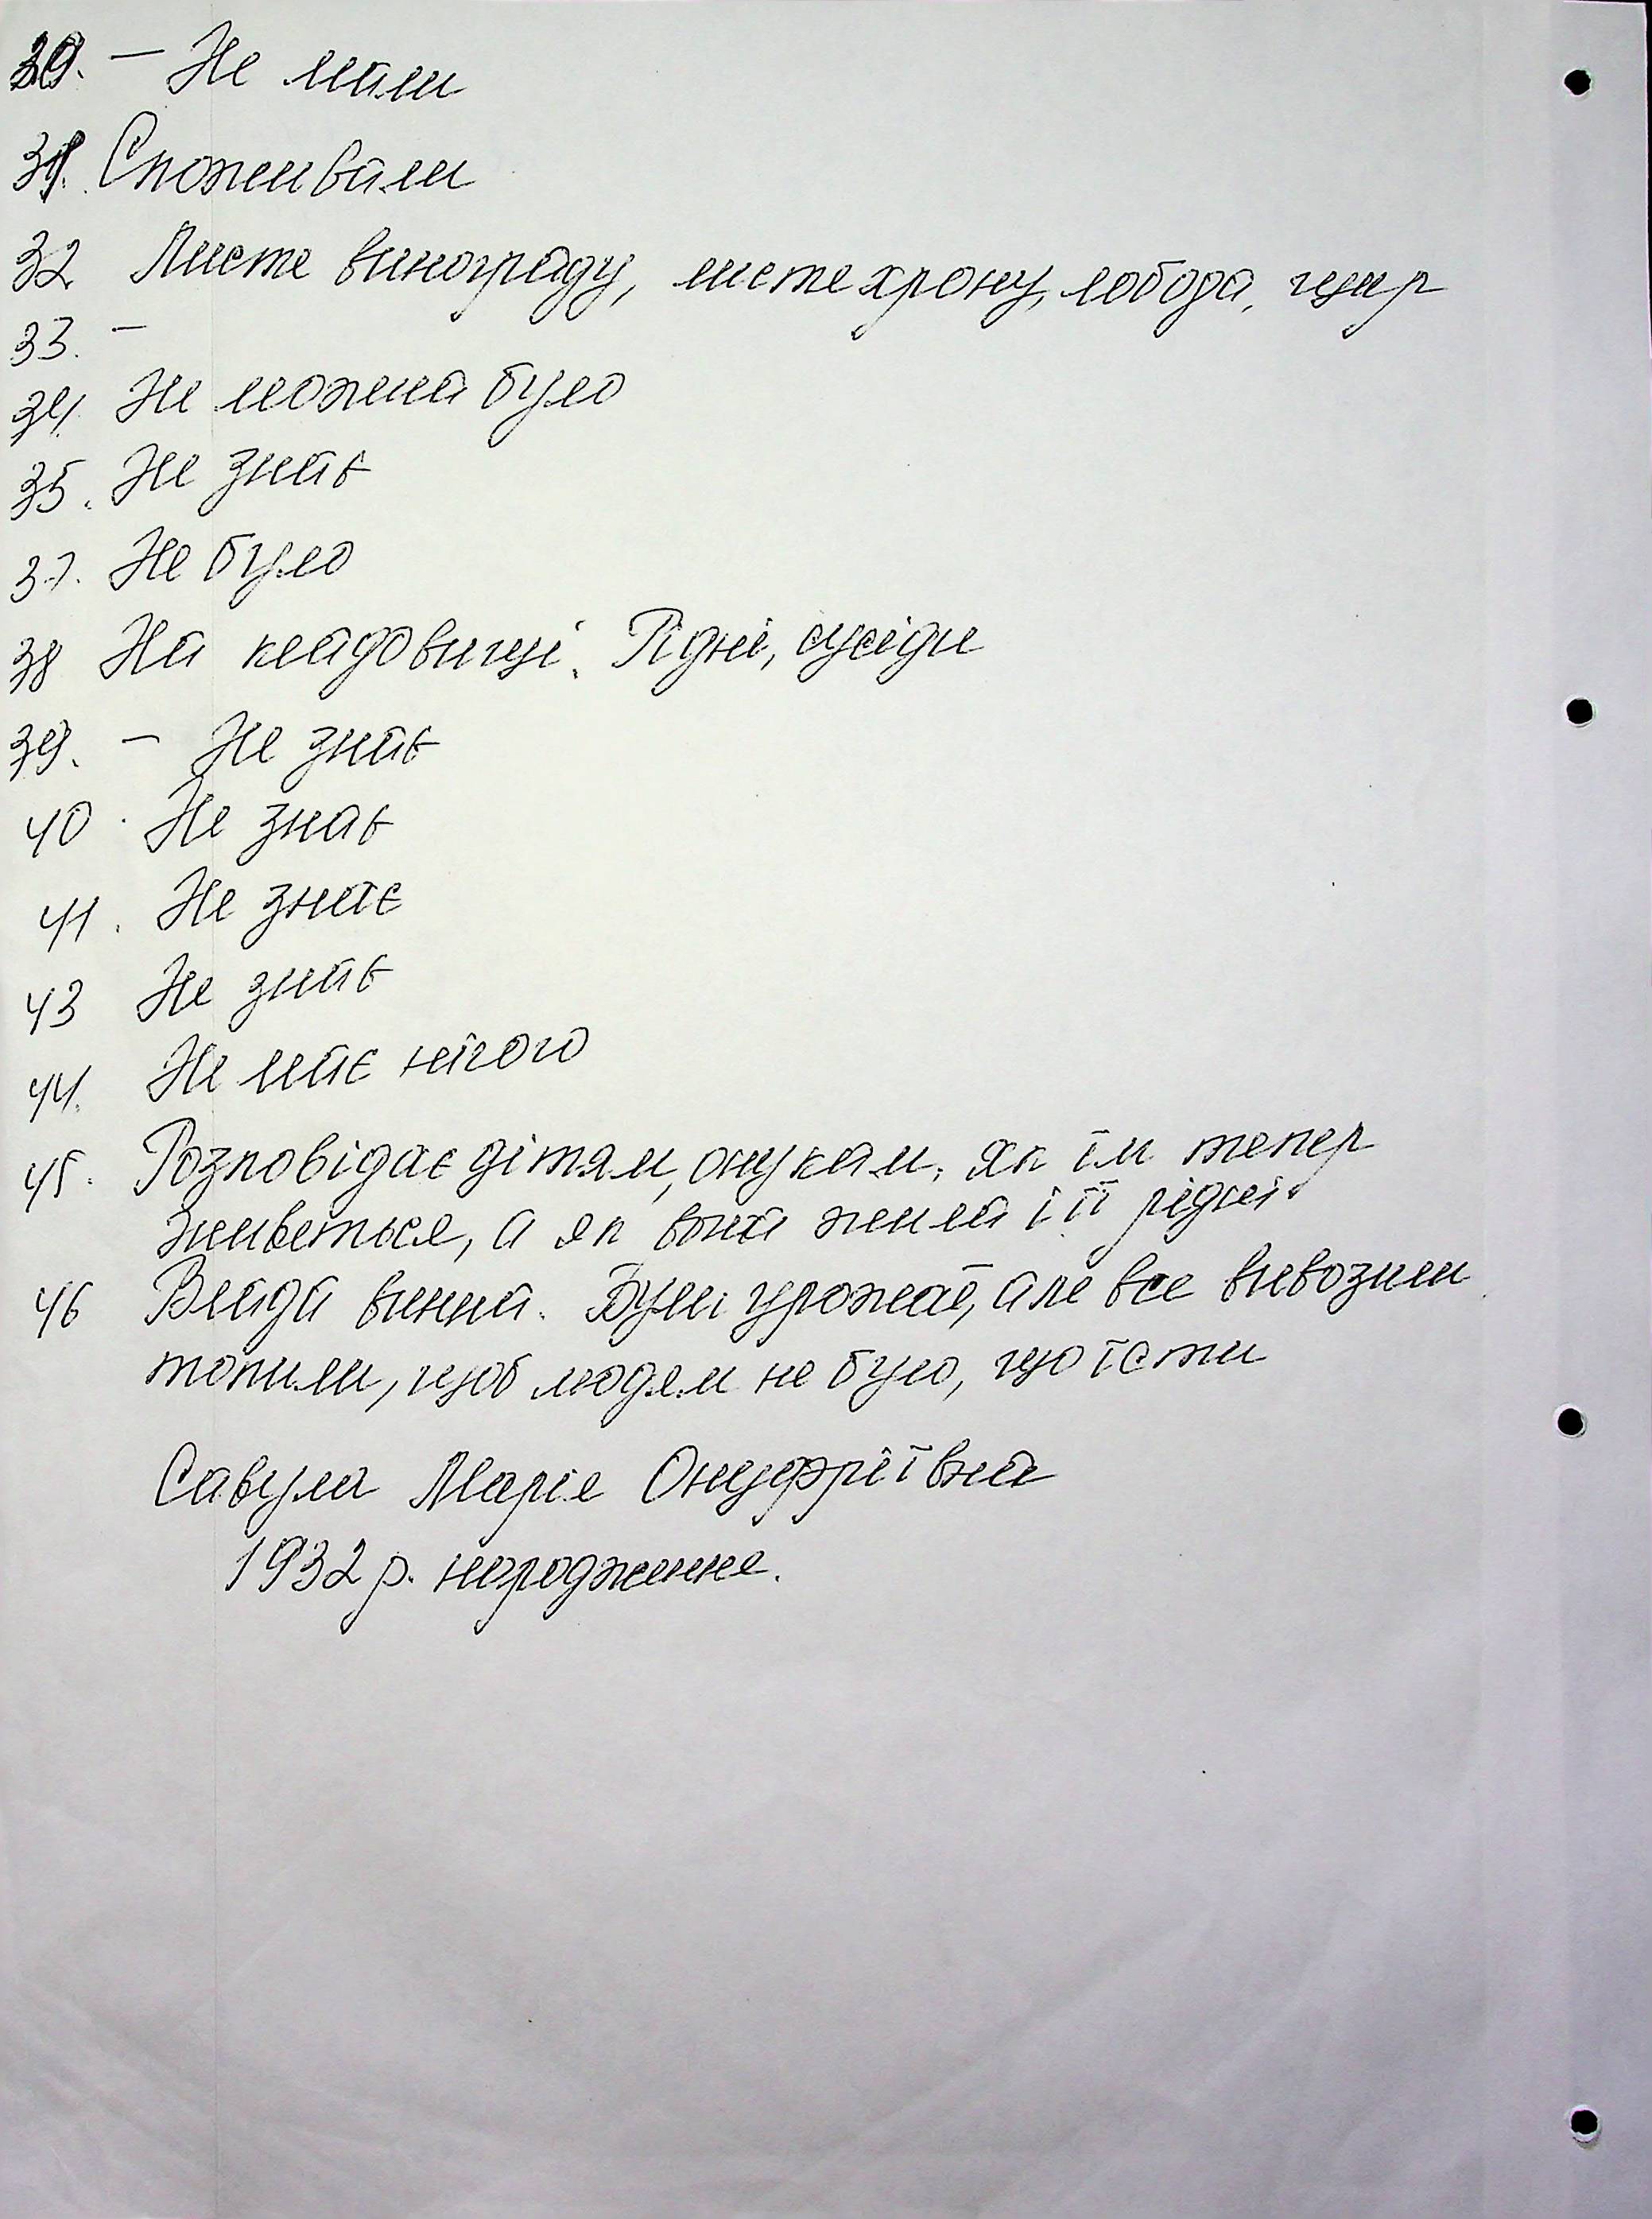 30. – Не мали
31. Споживали
32 Листя винограду, листя хрону, лобода, щир
33. –
34. Не можна було
35. Не знає
37. Не було
38 На кладовищі. Рідні, сусіди
39. – Не знає
40. Не знає
41. Не знає
43 Не знає
44. Не має нічого
45. Розповідає дітям, онукам, як їм тепер
живеться, а як вона жила і її рідні.
46 Влада винна. Були урожаї, але все вивозили
топили, щоб людям не було, що їсти
Савула Марія Онуфріївна
1932 р. народження.